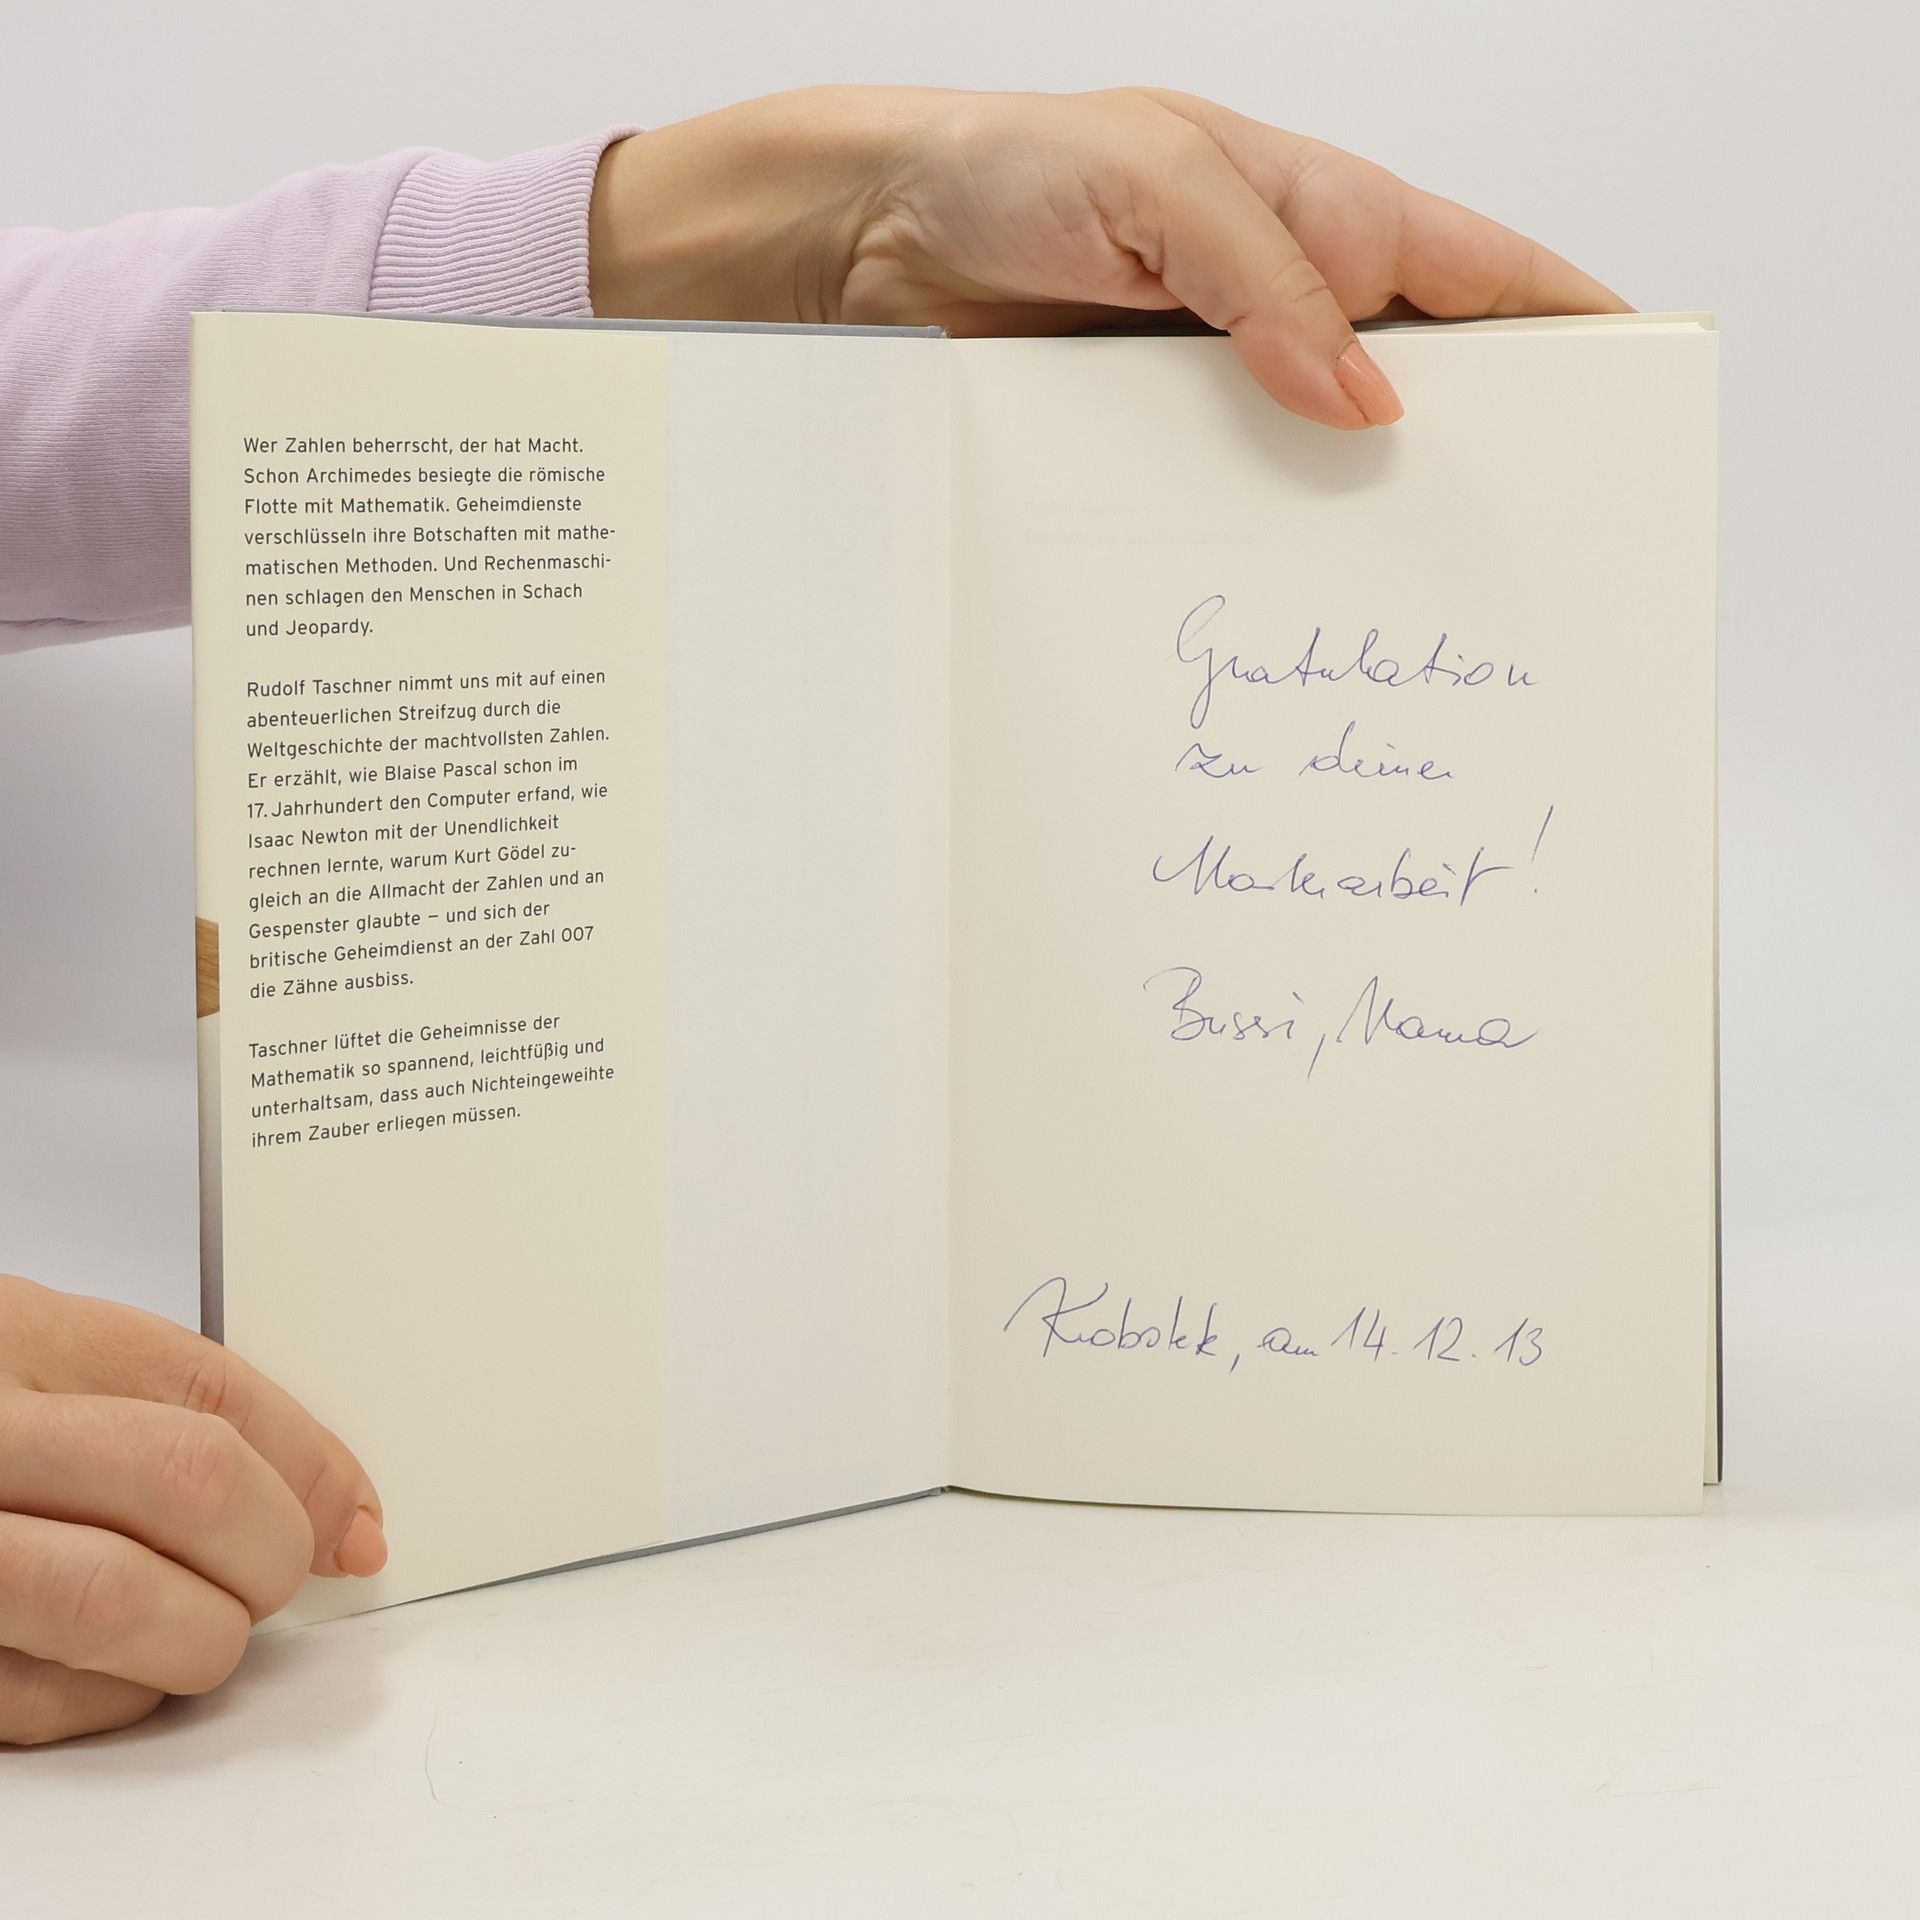 Wer Zahlen beherrscht, der hat Macht.
Schon Archimedes besiegte die römische
Flotte mit Mathematik. Geheimdienste
verschlüsseln ihre Botschaften mit mathe-
matischen Methoden. Und Rechenmaschi-
nen schlagen den Menschen in Schach
und Jeopardy.
Rudolf Taschner nimmt uns mit auf einen
abenteuerlichen Streifzug durch die
Weltgeschichte der machtvollsten Zahlen.
Er erzählt, wie Blaise Pascal schon im
17. Jahrhundert den Computer erfand, wie
Isaac Newton mit der Unendlichkeit
rechnen lernte, warum Kurt Gödel zu-
gleich an die Allmacht der Zahlen und an
Gespenster glaubte – und sich der
britische Geheimdienst an der Zahl 007
die Zähne ausbiss.
Taschner lüftet die Geheimnisse der
Mathematik so spannend, leichtfüßig und
unterhaltsam, dass auch Nichteingeweihte
ihrem Zauber erliegen müssen.
Gratulation
zu deiner
!
Bussi, Mama
, am 14.12.13